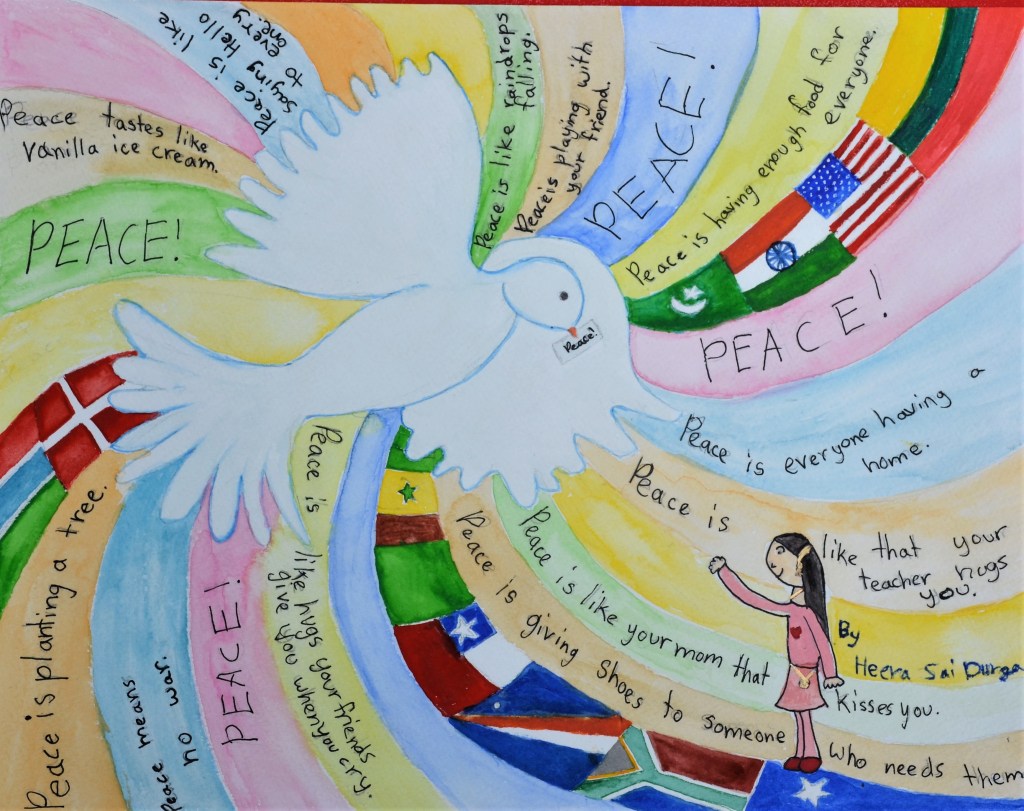 Peace is like
saying Hello
to every
one.
Peace tastes like
vanilla ice cream.
PEACE!
Peace is like raindrops
falling.
Peace is playing with
your friend.
PEACE!
Peace is having enough food for
everyone.
PEACE!
Peace!
Peace is everyone having a
home.
Peace is like that your
teacher hugs
you.
By
Heera Sai Durga
Peace is like your mom that kisses you.
Peace is giving shoes to someone who needs them
Peace is like hugs your friends
give you when you cry.
PEACE!
Peace means
no war.
Peace is planting a tree.